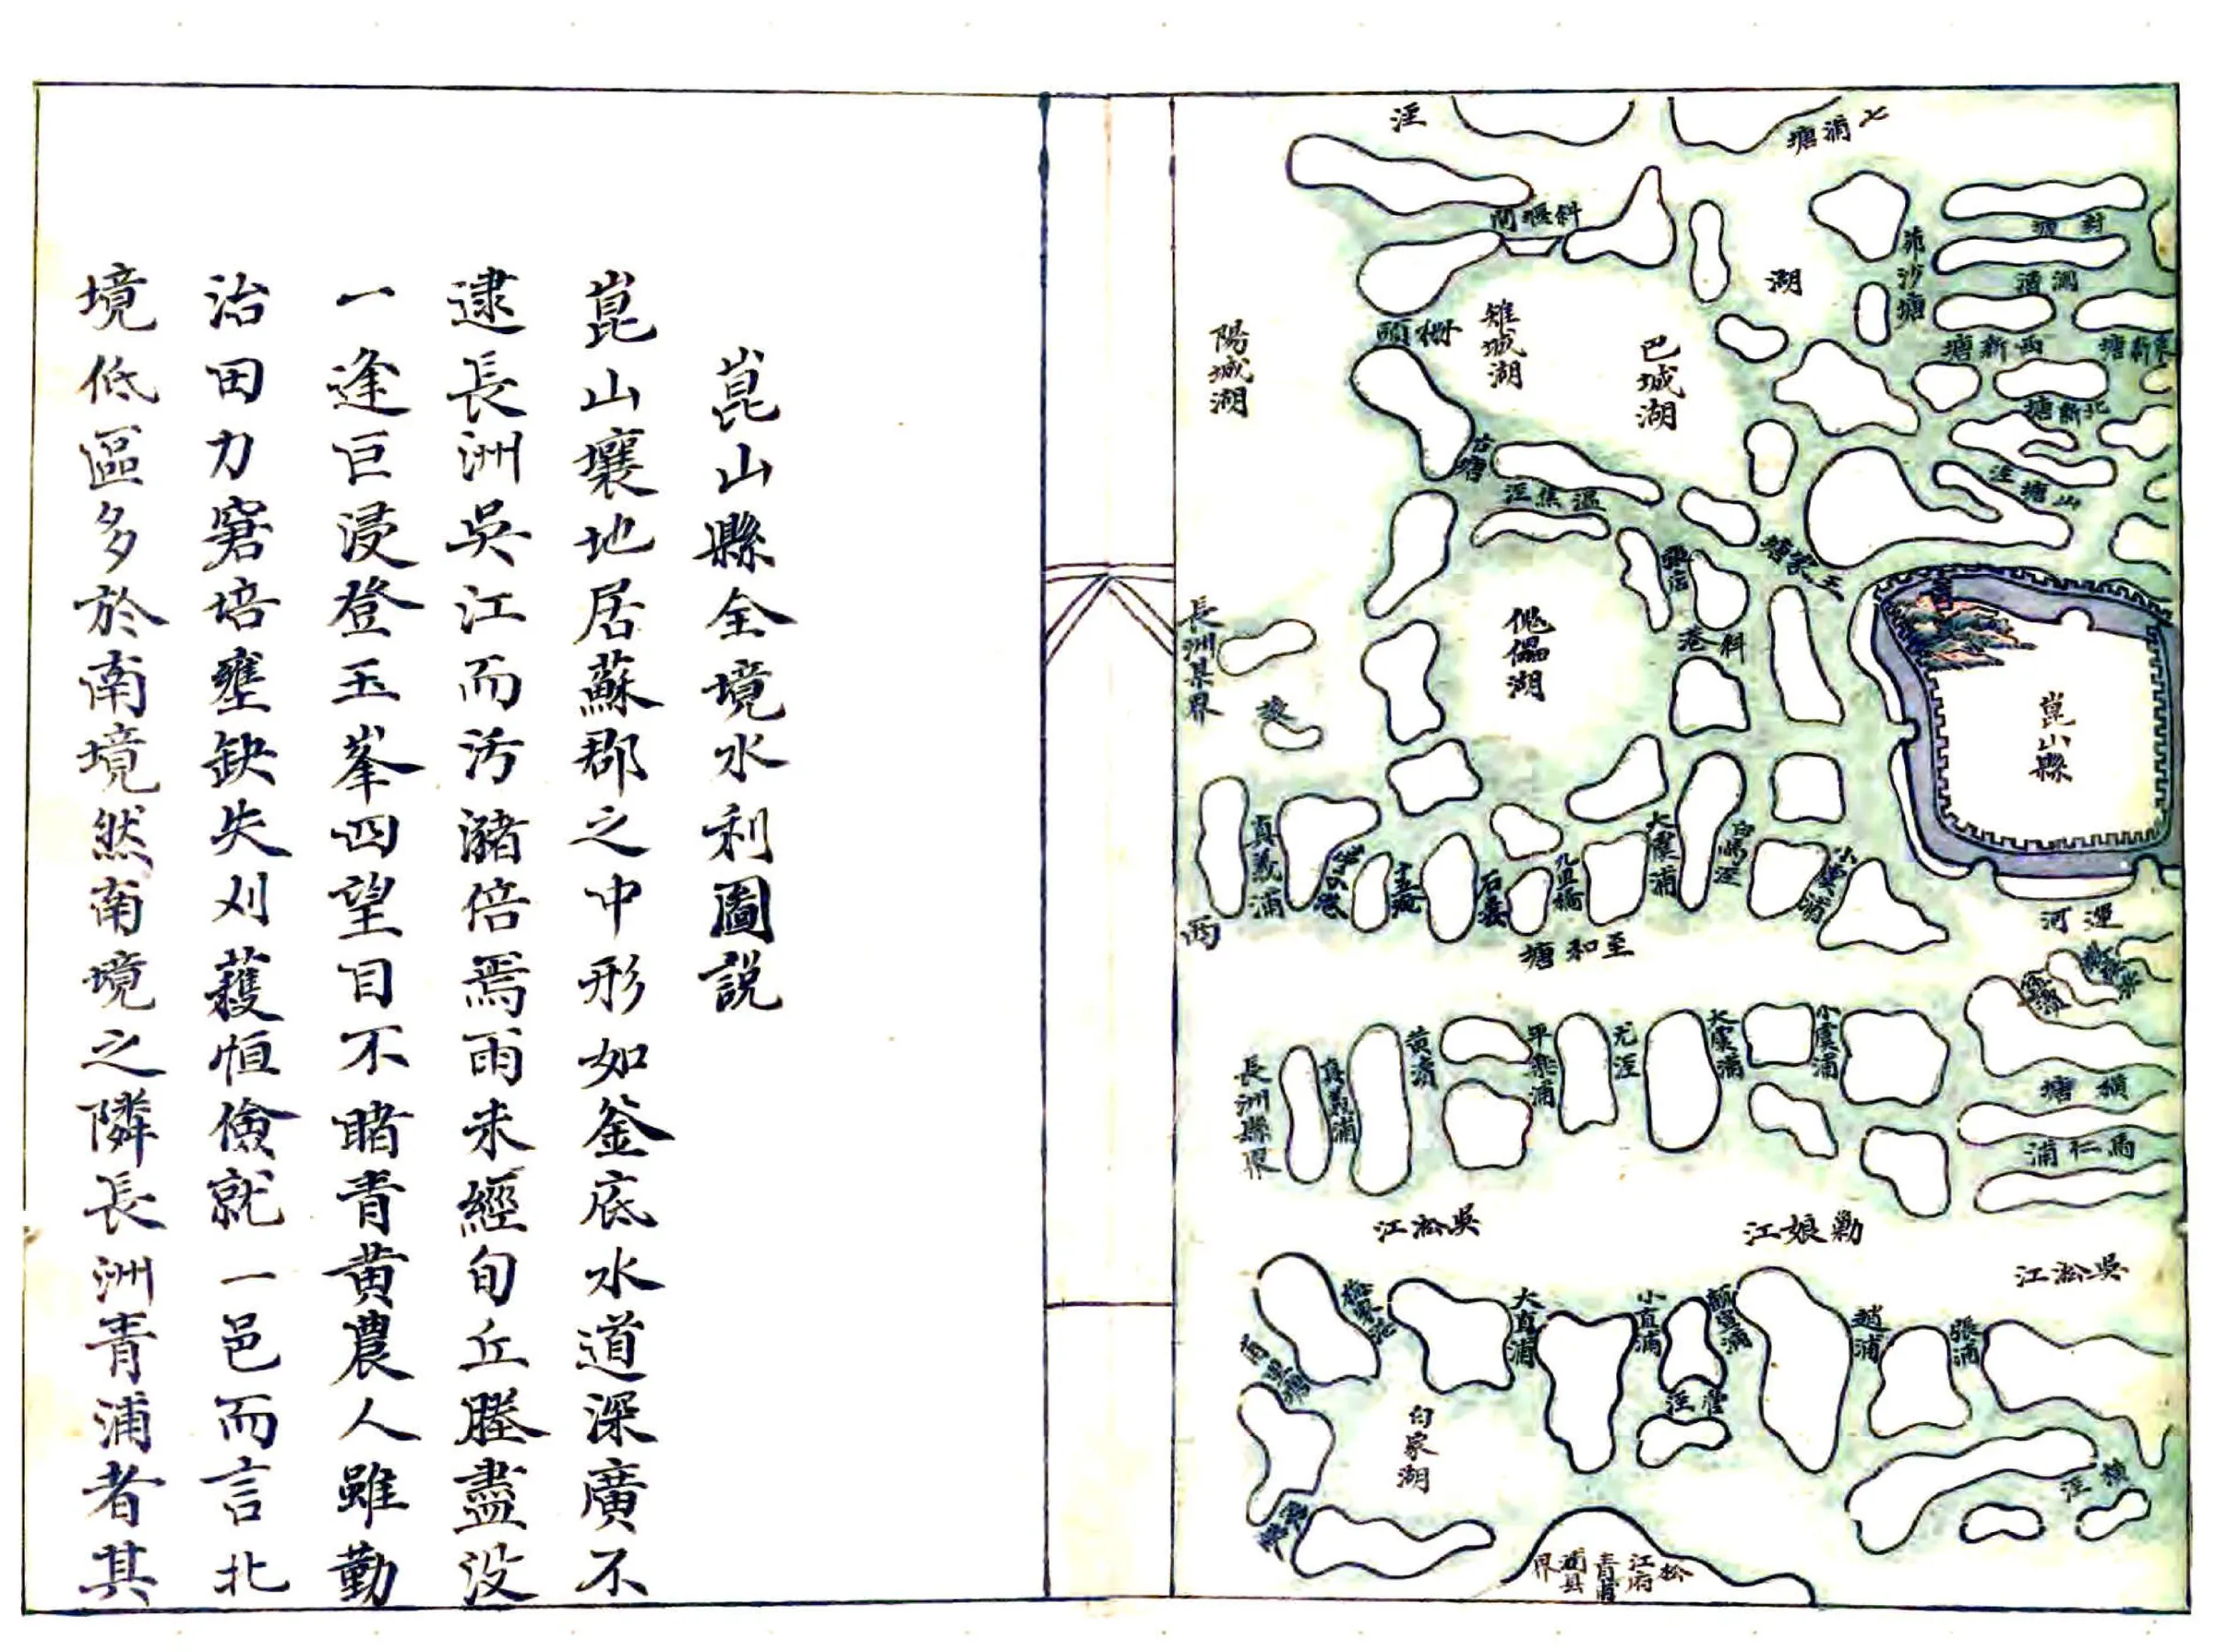 七浦塘
涇
斜堰閘
茆沙塘
湖
雉城湖
巴城湖
陽城湖
西新塘
東新塘
北新塘
山塘涇
古塘
溫焦涇
王家塘
張信
斜港
傀儡湖
長洲縣界
崑山縣
真義浦
大虞浦
小虞浦
九里橋
西
至和塘
運河
小虞浦
大虞浦
尤涇
平樂浦
黃瀆
真義浦
長洲縣界
橫塘
馬仁浦
吳淞江
勤娘江
吳淞江
張浦
趙浦
小直浦
大直浦
白家湖
松江府青浦縣界
崑山縣全境水利圖説
崑山壤地居蘇郡之中形如釜底水道深廣不
逮長洲吳江而汚瀦倍焉雨未經旬丘塍盡没
一逢巨浸登玉峯四望目不睹青黄農人雖勤
治田力窘培壅缺失刈蒦恒儉就一邑而言北
境低區多於南境然南境之隣長洲青浦者其